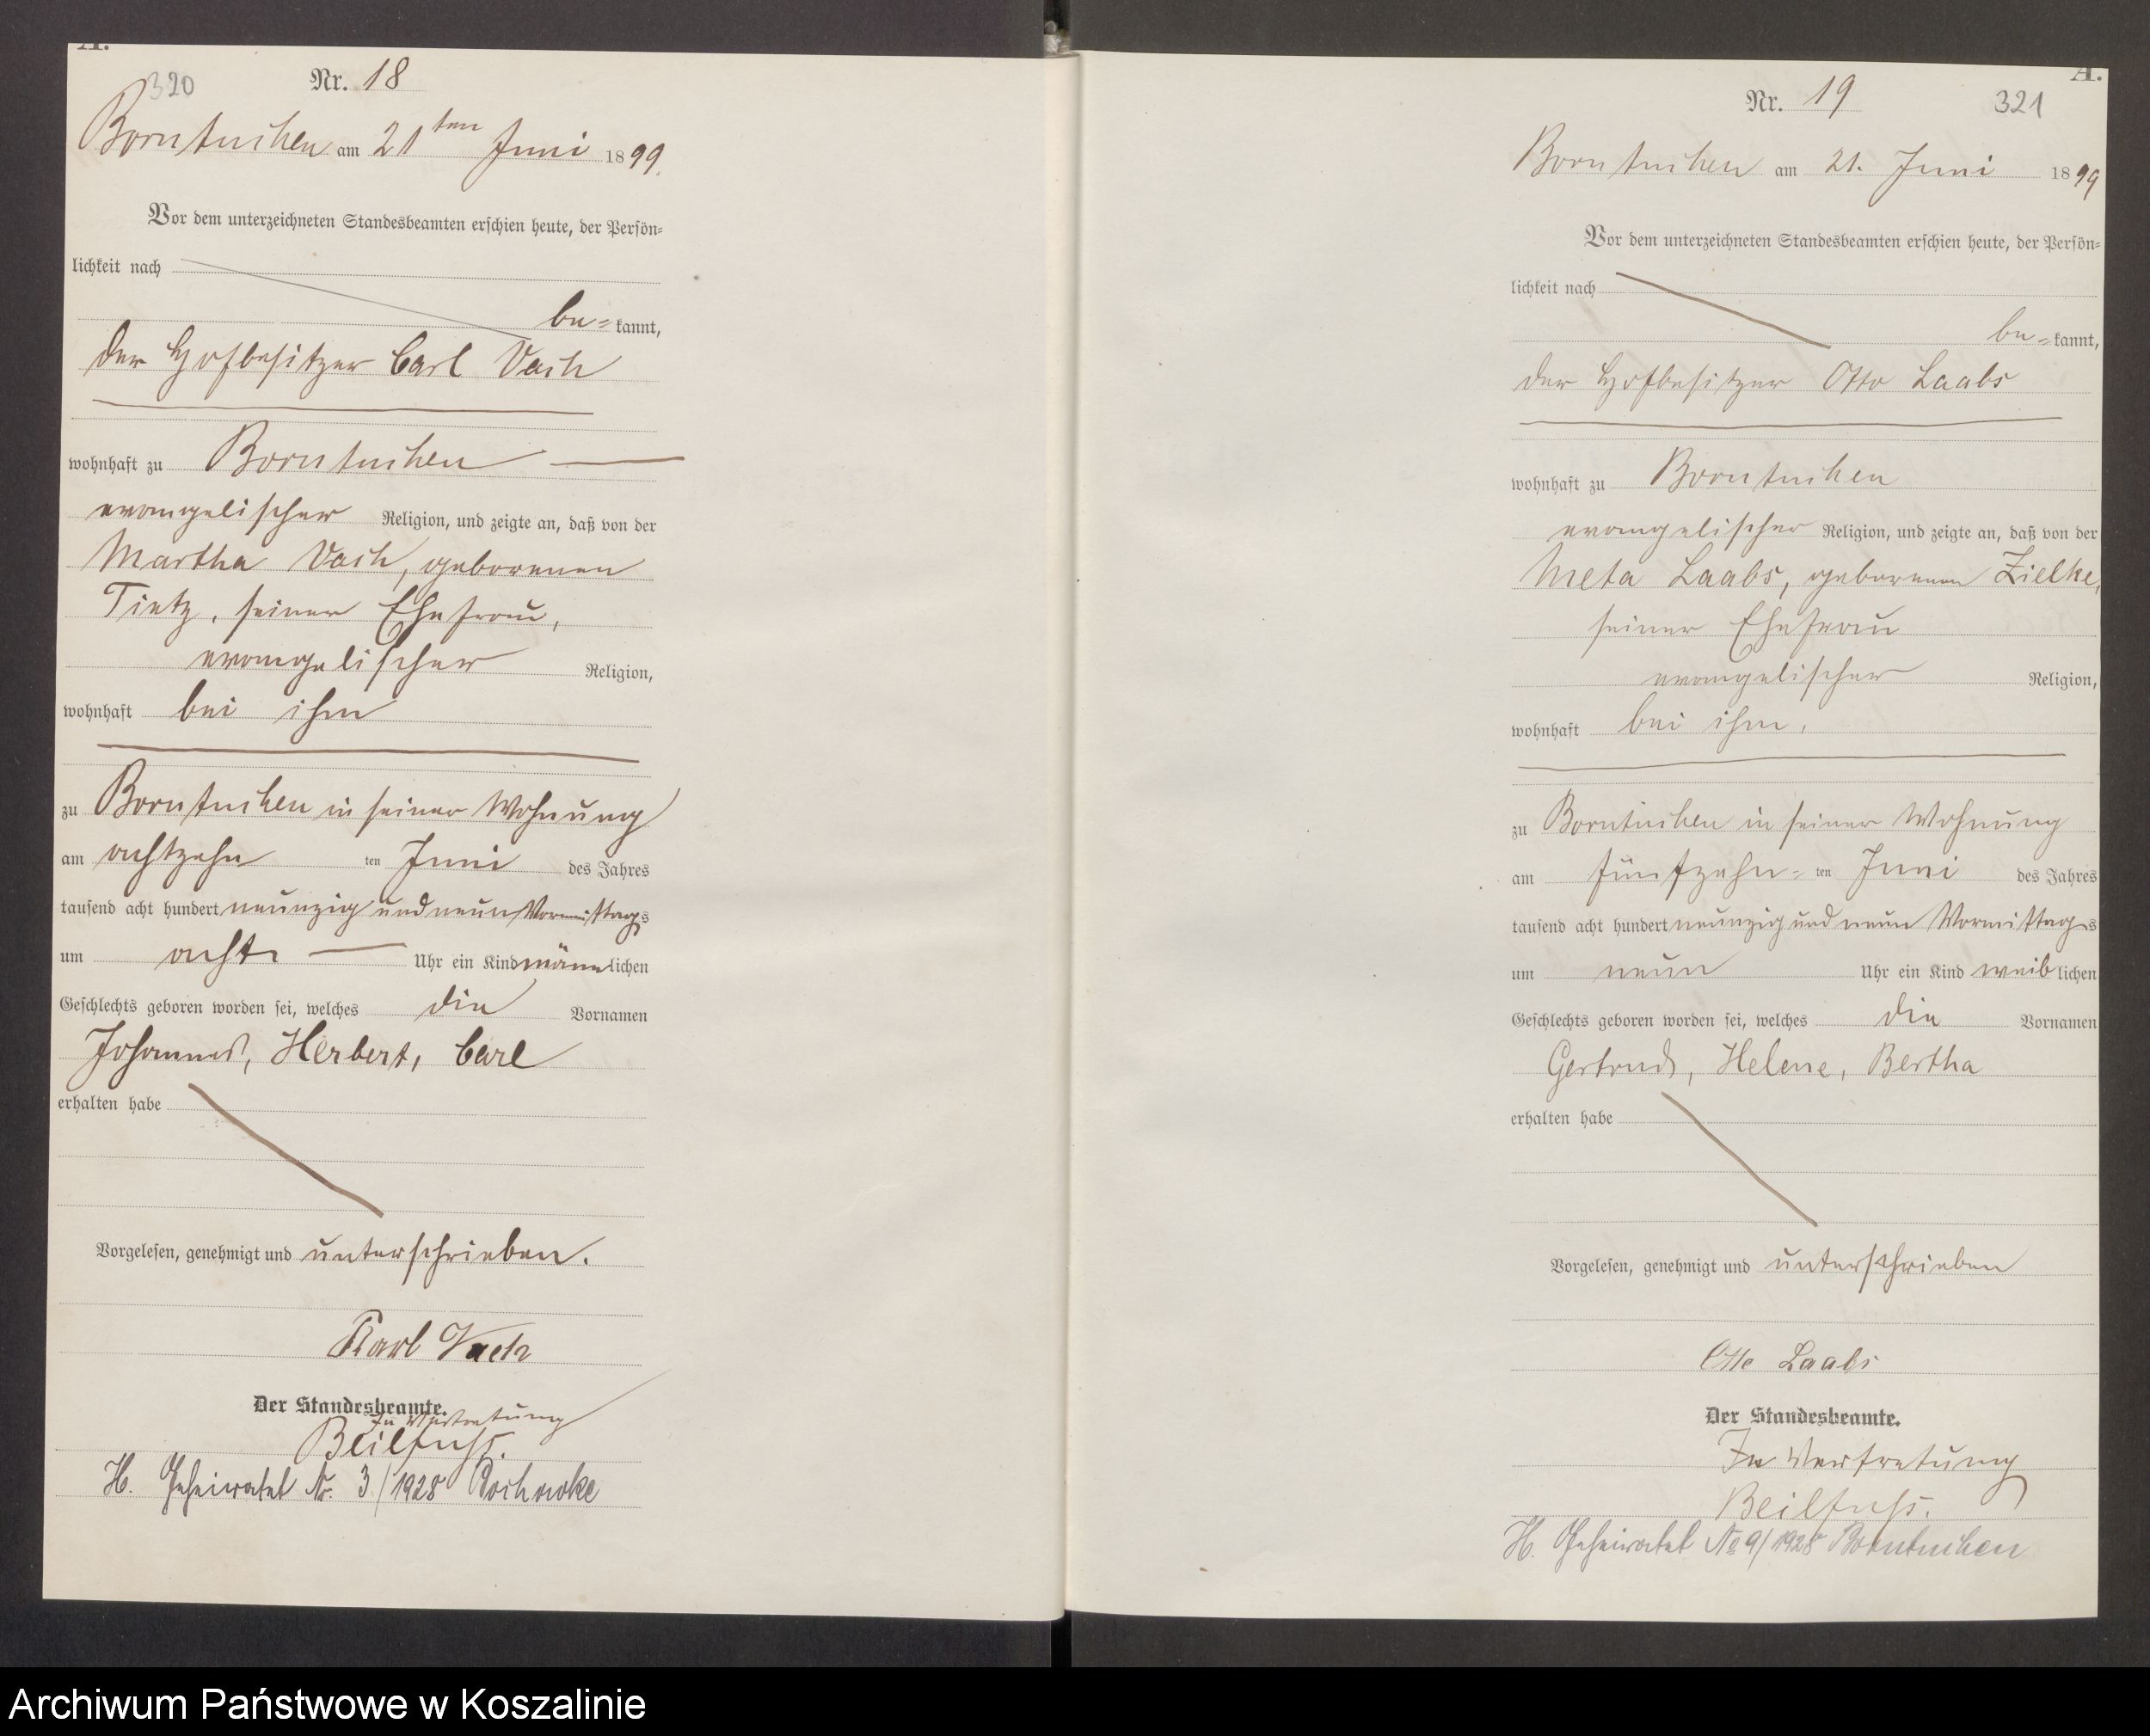 A.
320
Nr. 18
Borntuchen am 21ten Juni 1899.
Vor dem unterzeichneten Standesbeamten erschien heute, der Persön=
lichkeit nach
be= kannt,
der Hofbesitzer Carl Vach
wohnhaft zu Borntuchen
evangelischer Religion, und zeigte an, daß von der
Martha Vach, geborenen
Tietz, seiner Ehefrau,
evangelischer Religion,
wohnhaft bei ihm
zu Borntuchen in seiner Wohnung
am achtzehn ten Juni des Jahres
tausend acht hundert neunzig und neun Vormittags
um acht Uhr ein Kind männlichen
Geschlechts geboren worden sei, welches die Vornamen
Johannes, Herbert, Carl
erhalten habe
Vorgelesen, genehmigt und unterschrieben.
Karl Vach
Der Standesbeamte.
In Vertretung
Beilfuß.
H. Geheiratet Nr. 3/1928
A.
Nr. 19
321
Borntuchen am 21. Juni 1899
Vor dem unterzeichneten Standesbeamten erschien heute, der Persön=
lichkeit nach
be= kannt,
der Hofbesitzer Otto Laabs
wohnhaft zu Borntuchen
evangelischer Religion, und zeigte an, daß von der
Meta Laabs, geborenen Zielke,
seiner Ehefrau
evangelischer Religion,
wohnhaft bei ihm.
zu Borntuchen in seiner Wohnung
am fünfzehn= ten Juni des Jahres
tausend acht hundert neunzig und neun Vormittags
um neun Uhr ein Kind weiblichen
Geschlechts geboren worden sei, welches die Vornamen
Gertrud, Helene, Bertha
erhalten habe
Vorgelesen, genehmigt und unterschrieben
Otto Laabs
Der Standesbeamte.
In Vertretung
Beilfuß.
H. Geheiratet No 9/1928 Borntuchen
Archiwum Państwowe w Koszalinie